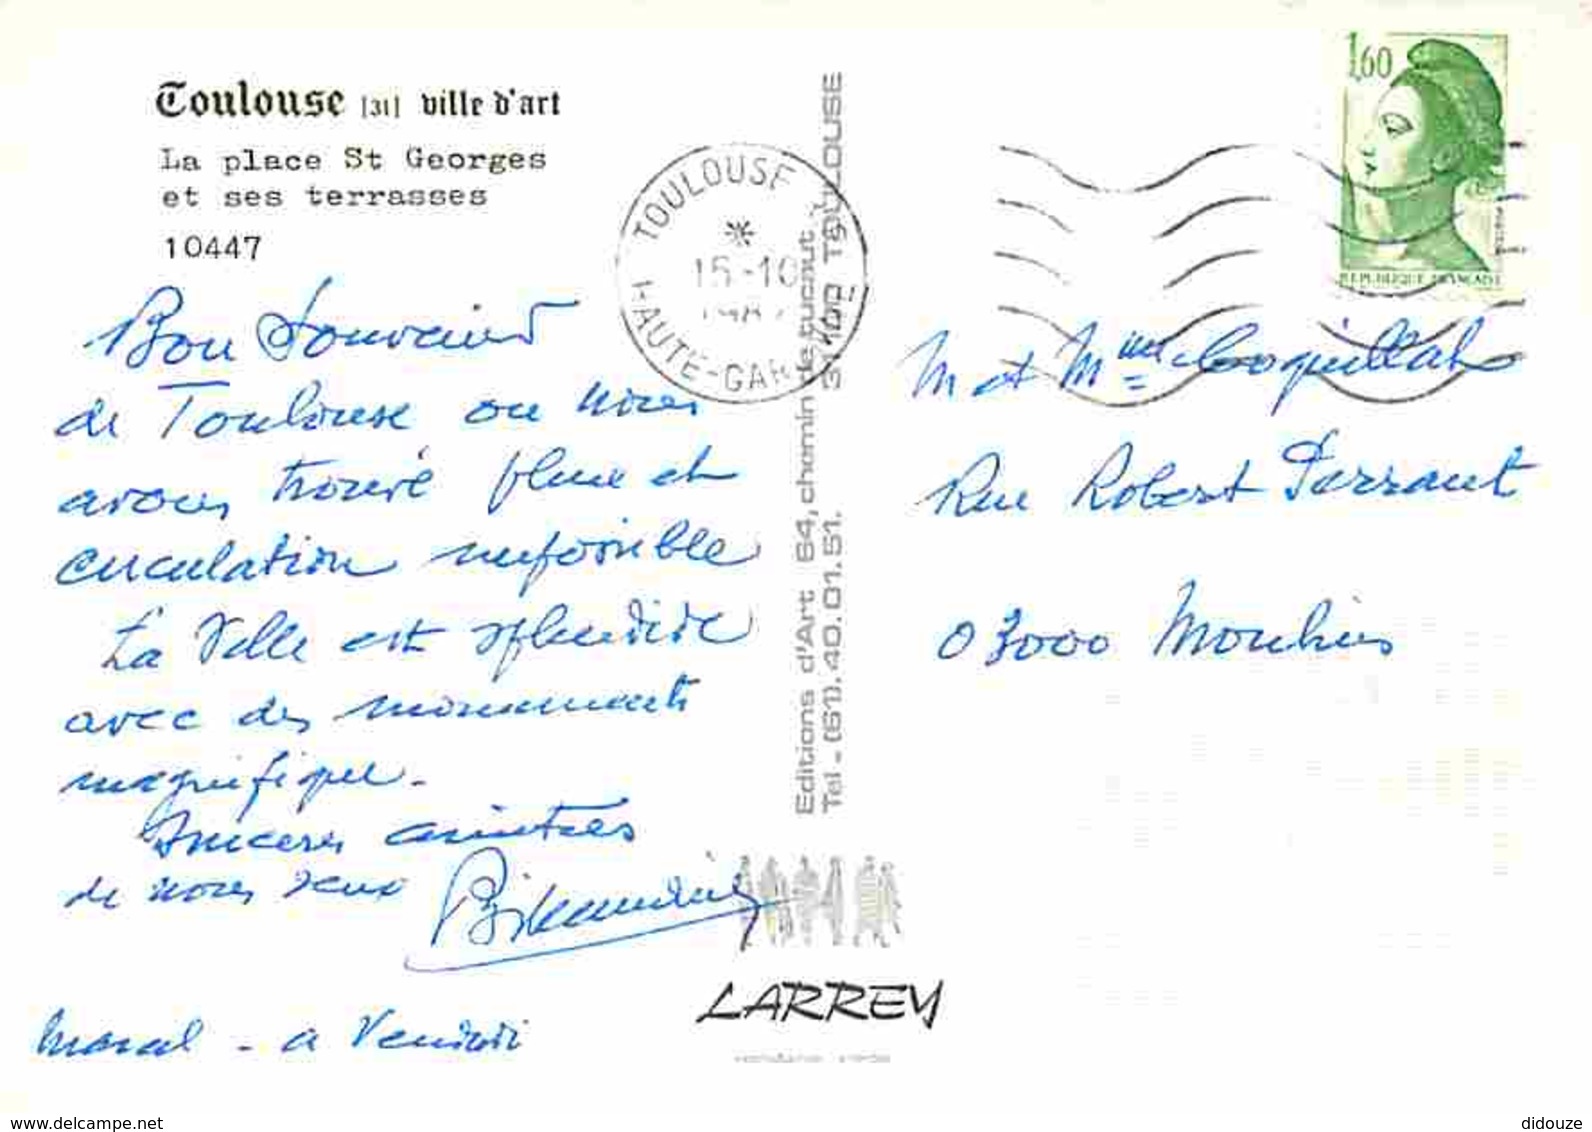 Toulouse [31] ville d'art
La place St Georges
et ses terrasses
10447
Bon Souvenir
de Toulouse ou nous
avons trouvé pluie et
circulation impossible
La Ville est splendide
avec des monuments
magnifique.
Sinceres amitiées
de nous deux
a Vendredi
TOULOUSE
15-10
HAUTE-GAR
Editions d'Art 64, chemin de tucaut - 31100 TOULOUSE
Tel - (61). 40. 01. 51.
LARREY
1,60
REPUBLIQUE FRANÇAISE
M et Mme
Rue Robert
03000 Moulins
www.delcampe.net
didouze